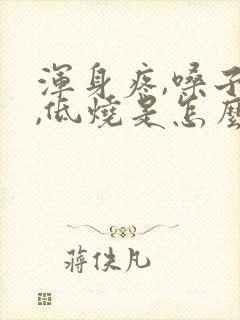 渾身疼,嗓子
,低燒是怎麼
蔣佚凡